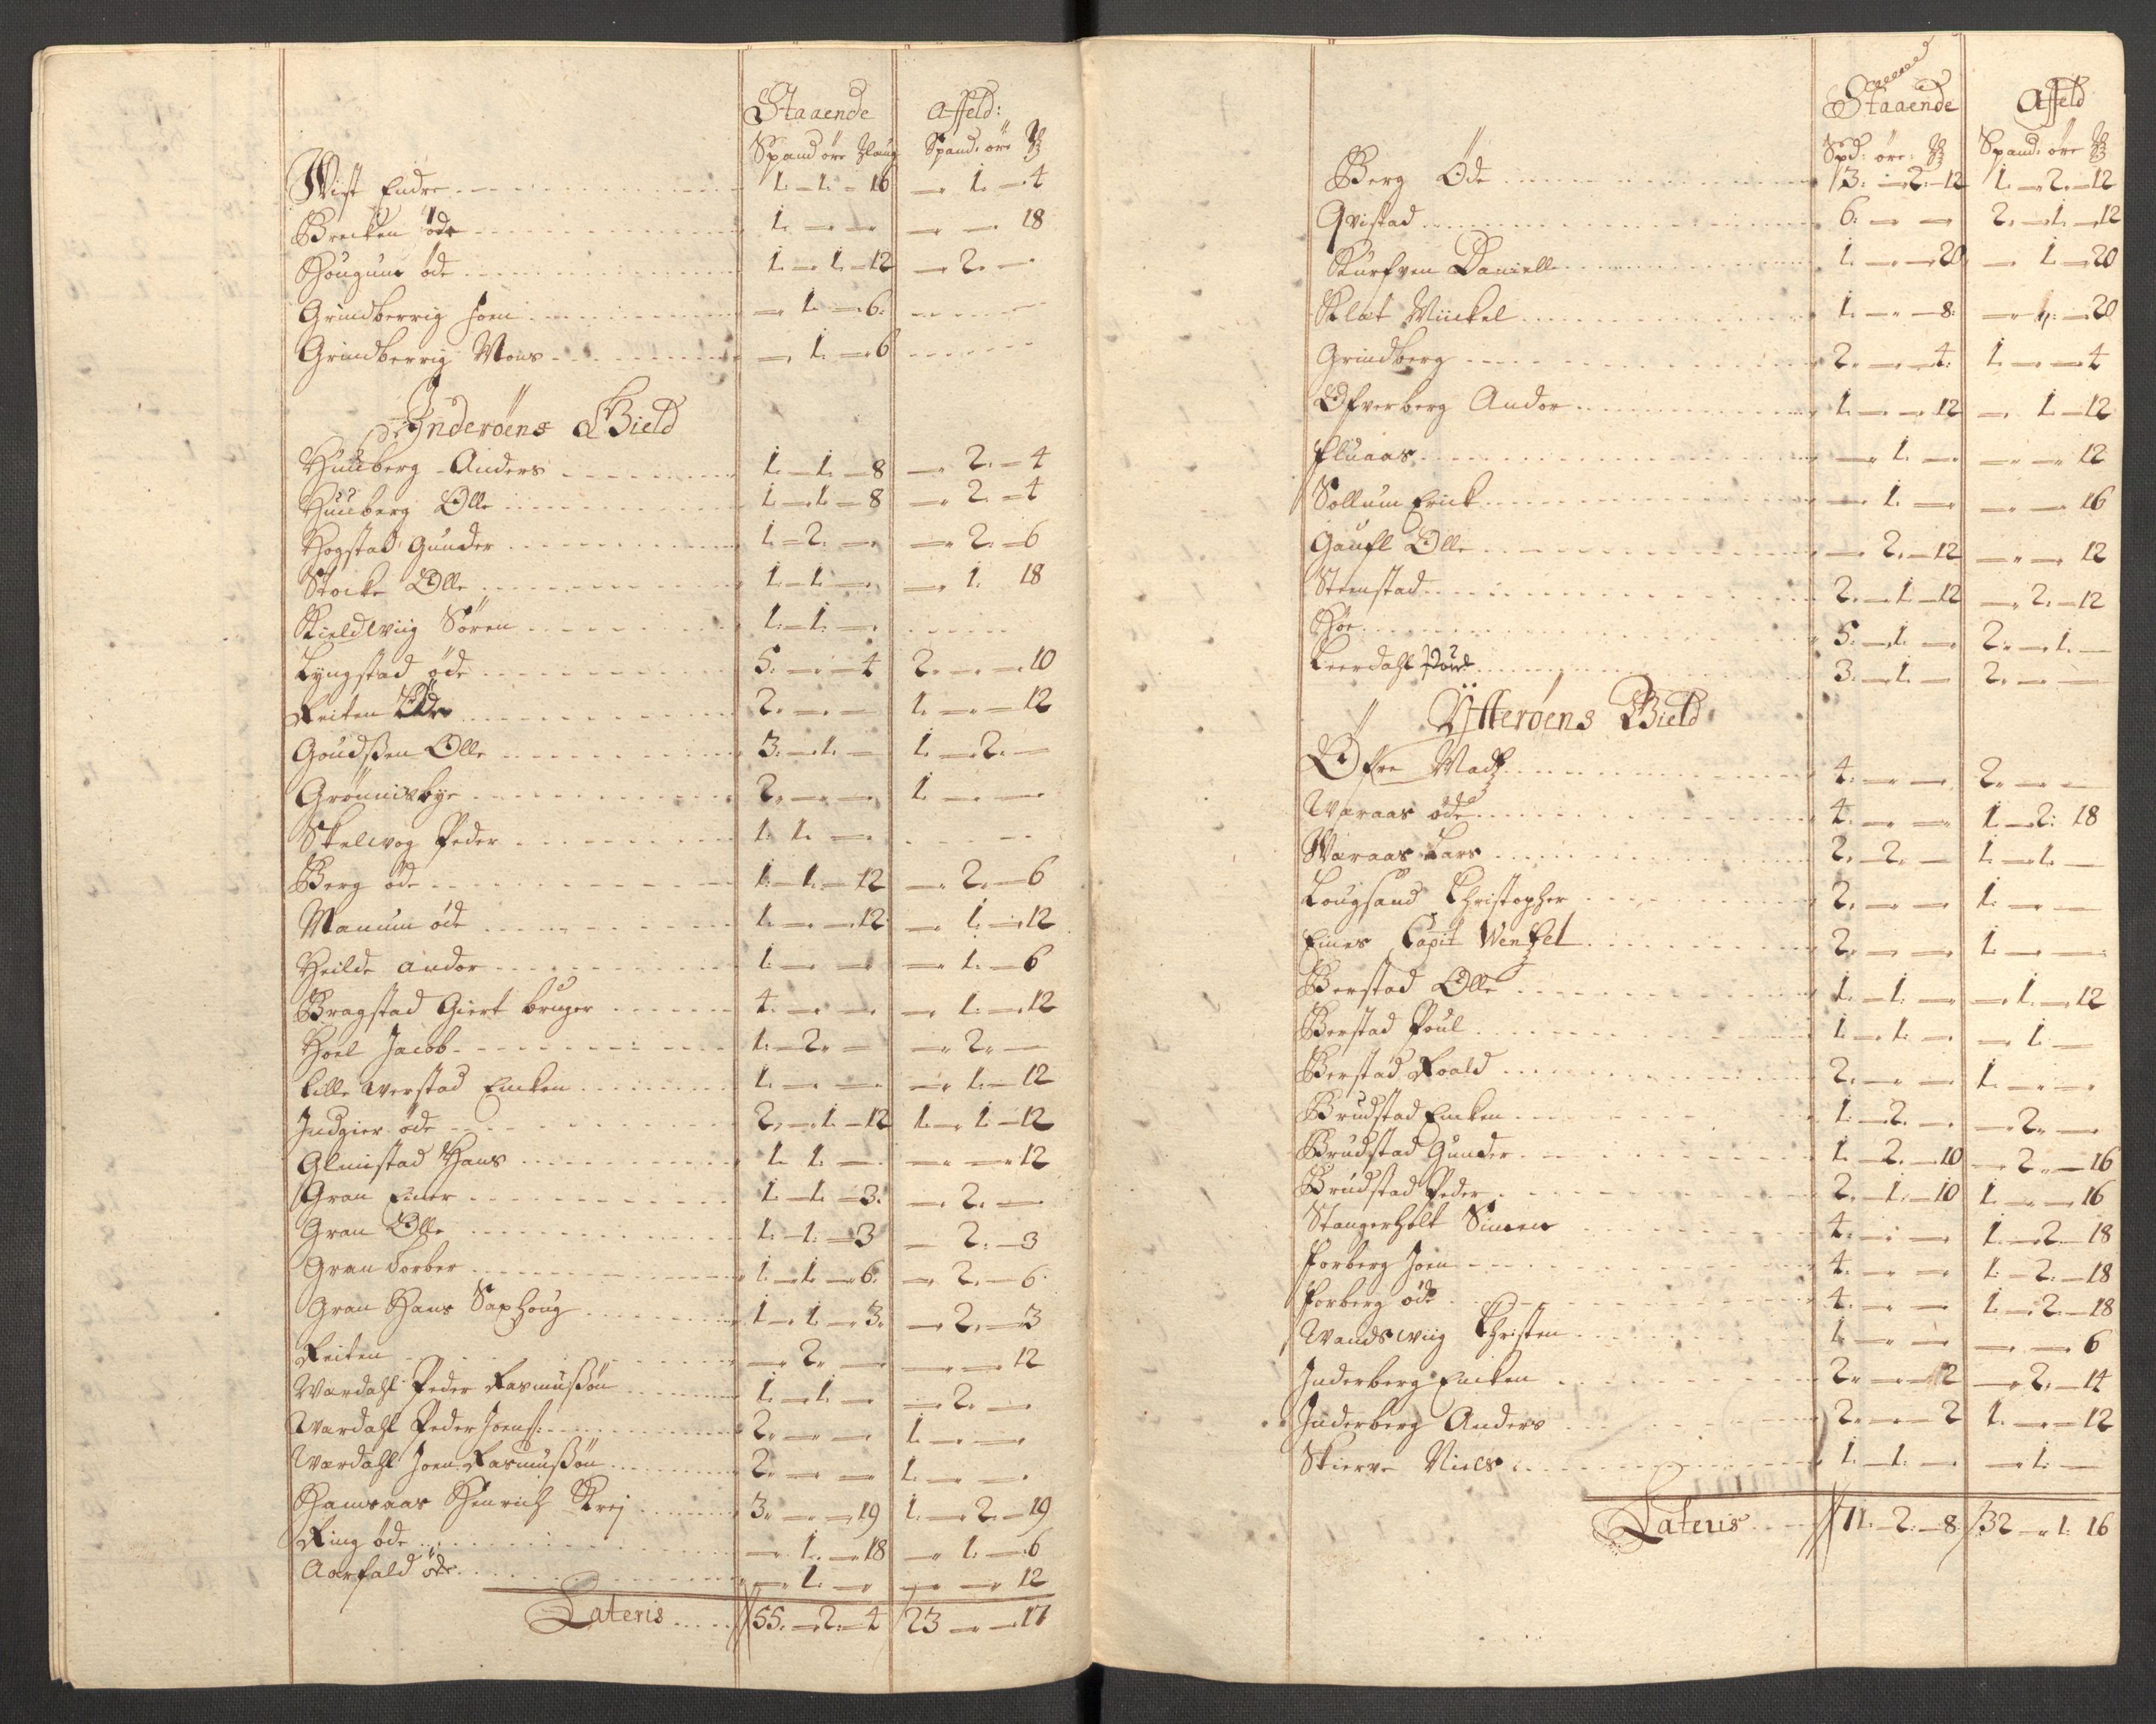 Staaende Affeld:
Spand öre Xlaug Spand: öre
Wist Endre 1. 1. 16 – 1. 4
Brecken öde 1. – – – – 18
Hougum öde 1. 1. 12 – 2. –
Grindberrig Joen – 1. 6.
Grindberrig Mons – 1. 6
Inderöens Gield
Huuberg Anders 1. 1. 8 – 2. 4
Huuberg Olle 1. 1. 8 – 2. 4
Hogstad Gunder 1. 2. – – 2. 6
Stocke Olle 1. 1. – – 1. 18
Kieldwiig Sören 1. 1. –
Lyngstad öde 5. – 4 2. – 10
Reiten Öde 2. – – 1. – 12
Goudßen Olle 3. 1. – 1. 2. –
Grönnisbye 2. – – 1. – –
Skelwog Peder 1. 1. –
Berg öde 1. 1. 12 – 2. 6
Manum öde 1. – 12. – 1. 12
Heilde Andor 1. – – – 1. 6
Bragstad Giert bruger 4. – – – 1. 12
Hoel Jacob 1. 2. – – 2. –
Lille Werstad Encken 1. – – – 1. 12
Judgier öde 2. 1. 12 1. 1. 12
Glmistad Hans 1. 1. – – – 12
Gran Einer 1. 1. 3. – 2. –
Gran Olle 1. 1. 3 – 2. 3
Gran Torber 1. 1. 6. – 2. 6.
Gran Hans Saxhoug 1. 1. 3. – 2. 3
Reiten – 2. – – – 12
Wardahl Peder Rasmußön 1. 1. – – 2. –
Wardahl Peder Joens: 2. – – 1. – –
Wardahl Joen Rasmußön 2. – – 1. – –
Hamraas Henrich Krej 3. – 19 1. 2. 19
Ring öde – 1. 18 – 1. 6
Aarfald öde – 1. – – – 12
Lateris 55. 2. 4 23 – 17
Staaende Affeld
Spd: öre: Spand: öre
Berg Öde 3. 2. 12 1. 2. 12
Qvistad 6. – – 2. 1. 12
Kurfven Daniell 1. – 20 – 1. 20
Klat Mickel 1. – 8. – 1. 20
Grindberg 2. – 4. 1. – 4
Ofverberg Andor 1. – 12 – 1. 12
Fluaas – 1. – – – 12
Sollum Erick – 1. – – – 16
Gaufl Olle – 2. 12 – – 12
Steenstad 2. 1. 12 – 2. 12
Höe 5. 1. – 2. 1. –
Leerdahl Poul 3. 1. – 2. – –
Ÿtteröens Gield
Öfre Madz 4. – – 2. – –
Waraas öde 4. – – 1. 2. 18
Waraas Lars 2. 2. – 1. 1. –
Lougsand Christopher 2. – – 1. – –
Eines Capit Wentzel 2. – – 1. – –
Berstad Olle 1. 1. – – 1. 12
Berstad Poul 1. 1. – – 1. –
Berstad Roald 2. – – 1. – –
Brudstad Encken 1. 2. – – 2. –
Brudstad Gunder 1. 2. 10 – 2. 16
Brudstad Peder 2. 1. 10 1. – 16
Stangerholt Simen 4. – – 1. 2. 18
Forberg Joen 4. – – 1. 2. 18
Forberg öde 4. – – 1. 2. 18
Wandswiig Christen 1. – – – – 6
Inderberg Encken 2. – 2 – 2. 14
Inderberg Anders 2. – 2 1. – 12
Skierve Niels 1. 1. – – 1. –
Lateris 71. 2. 8 32 1. 16